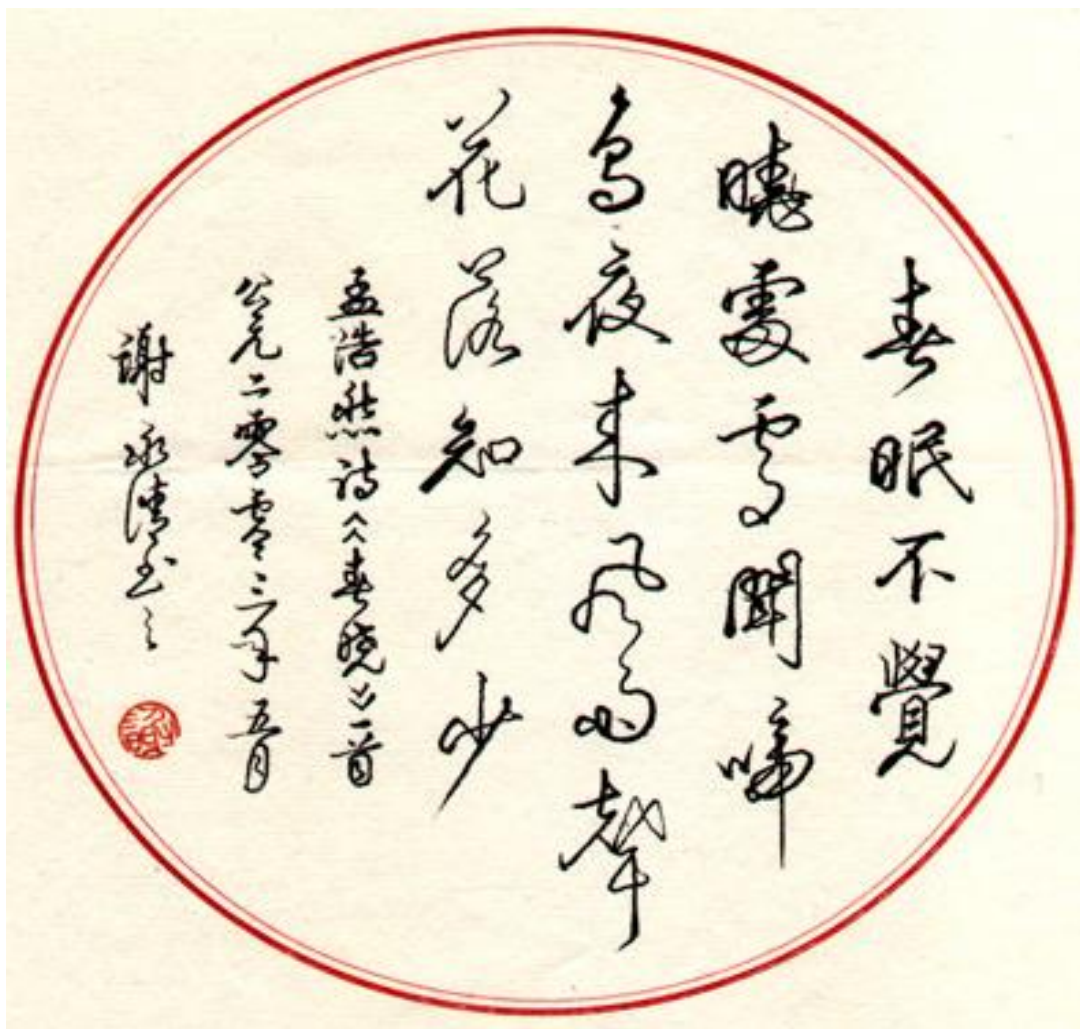 春眠不覺
曉處處聞啼
鳥夜来風雨聲
花落知多少
孟浩然诗《春晓》一首
公元二零零二年五月
谢永清书之